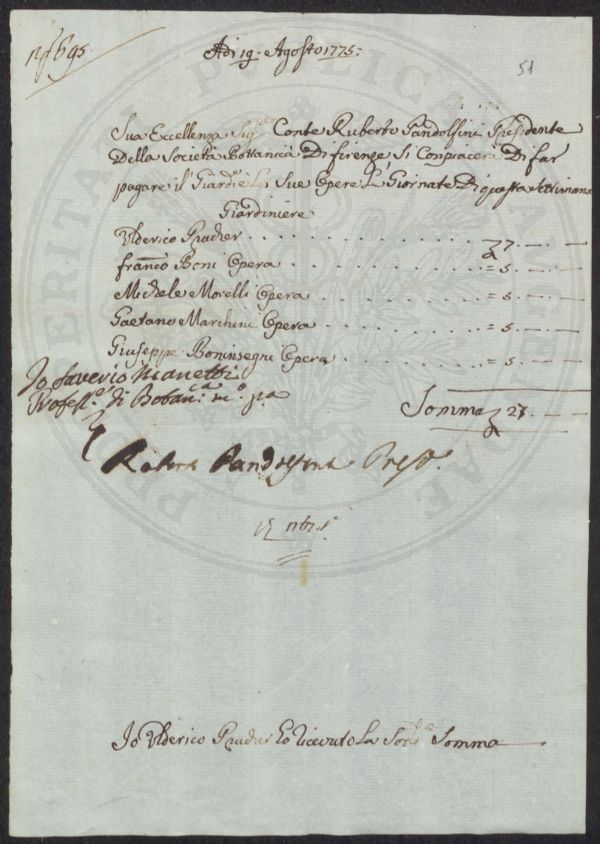 Adi 19. Agosto 1775:
51
Sua Eccellenza Sig.re Conte Ruberto Pandolfini Presidente
Della Società Bottanica Di firenze Si Conpiacerà Di far
pagare il Giard.e Le Sue Opere La Giornate Di questa Settimana
Giardiniere
Ulderico Prucher . . . . . . . . . . . 7. — —
Franco Boni Opera . . . . . . . . . = 5. — —
Michele Morelli Opera . . . . . . . . = 5. — —
Gaetano Marchini Opera . . . . . . . = 5. — —
Giuseppe Boninsegni Opera . . . . . . = 5. — —
Io Saverio Manetti
Profess.e di Botan.ca m.o p.a
Somma 27. — —
Roberto Pandolfini Presid.
Io Ulderico Prucher ho ricevuto La Somma